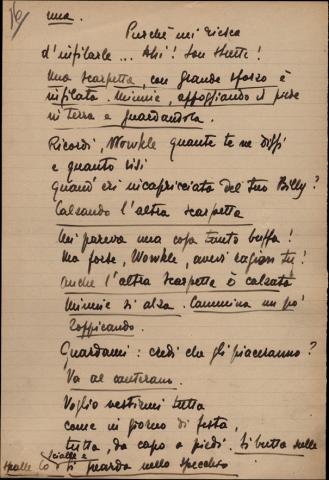 16)
una.
Purchè mi riesca
d'infilarle... Ahi! Son strette!
Una scarpetta, con grande sforzo è
infilata. Minnie, appoggiando il piede
in terra e guardandola.
Ricordi, Wowkle quante te ne dissi
e quanto risi
quand'eri incapricciata del tuo Billy?
Calzando l'altra scarpetta
Mi pareva una cosa tanto buffa!
Ma forse, Wowkle, avevi ragion tu!
Anche l'altra scarpetta è calzata
Minnie si alza. Cammina un po'
zoppicando.
Guardami: credi che gli piaceranno?
Va al canterano.
Voglio vestirmi tutta
come in giorno di festa,
tutta, da capo a piedi. Si butta sulle
spalle lo scialle e si guarda nello specchio